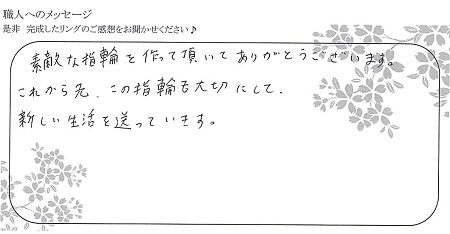 職人へのメッセージ
是非 完成したリングのご感想をお聞かせください♪
素敵な指輪を作って頂いてありがとうございます。
これから先、この指輪を大切にして、
新しい生活を送っていきます。